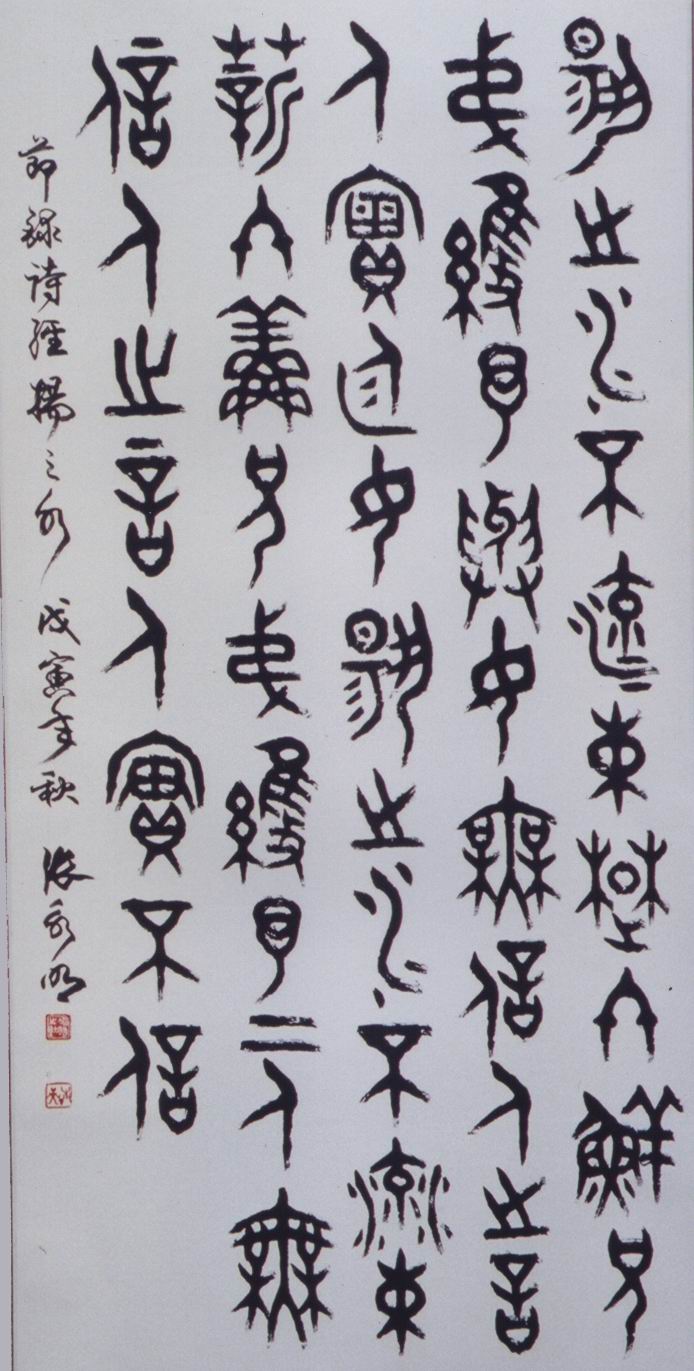 揚之水不流束楚終鮮兄
弟維予與女無信人之言
人實迋女揚之水不流束
薪終鮮兄弟維予二人無
信人之言人實不信
節錄詩經揚之水 戊寅年秋 張永明